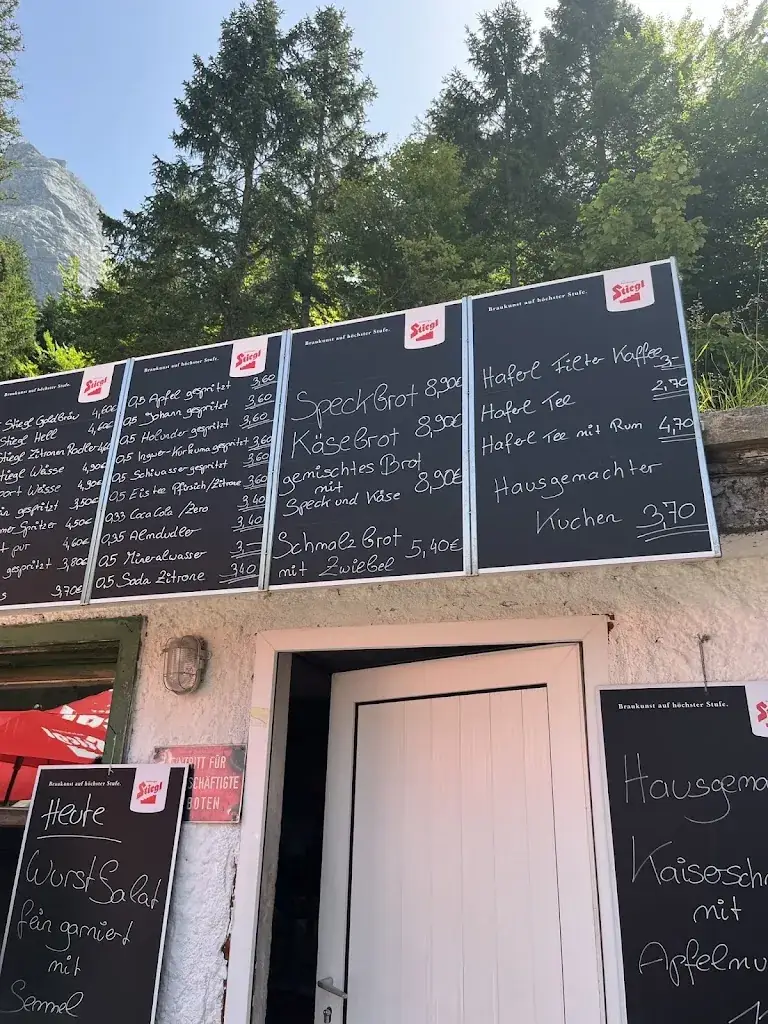 Braukunst auf höchster Stufe. Stiegl
Stiegl Goldbräu 4,60€
Stiegl Hell 4,60€
Stiegl Zitronen Radler
Stiegl Weisse 4,90€
Weisse 4,90€
gespritzt 3,50€
Spritzer 4,50€
pur 4,60€
gespritzt 3,80€
3,70€
Braukunst auf höchster Stufe. Stiegl
0,5 Apfel gespritzt 3,60
0,5 Johann gespritzt 3,60
0,5 Holunder gespritzt 3,60
0,5 Ingwer-Kurkuma gespritzt 3,60
0,5 Schiwasser gespritzt 3,60
0,5 Eistee Pfirsich/Zitrone 3,60
0,33 Coca Cola / Zero 3,40
0,35 Almdudler 3,40
0,5 Mineralwasser 3,-
0,5 Soda Zitrone 3,40
Braukunst auf höchster Stufe. Stiegl
Speckbrot 8,90€
Käsebrot 8,90€
gemischtes Brot
mit
Speck und Käse 8,90€
Schmalzbrot
mit Zwiebel 5,40€
Braukunst auf höchster Stufe. Stiegl
Haferl Filter Kaffee 3,-
Haferl Tee 2,70
Haferl Tee mit Rum 4,70
Hausgemachter
Kuchen 3,70
EINTRITT FÜR
SCHÄFTIGTE
BOTEN
Braukunst auf höchster Stufe. Stiegl
Heute
WurstSalat
fein garniert
mit
Semmel
Braukunst auf höchster Stufe.
Hausgema
Kaisersch
mit
Apfelmu